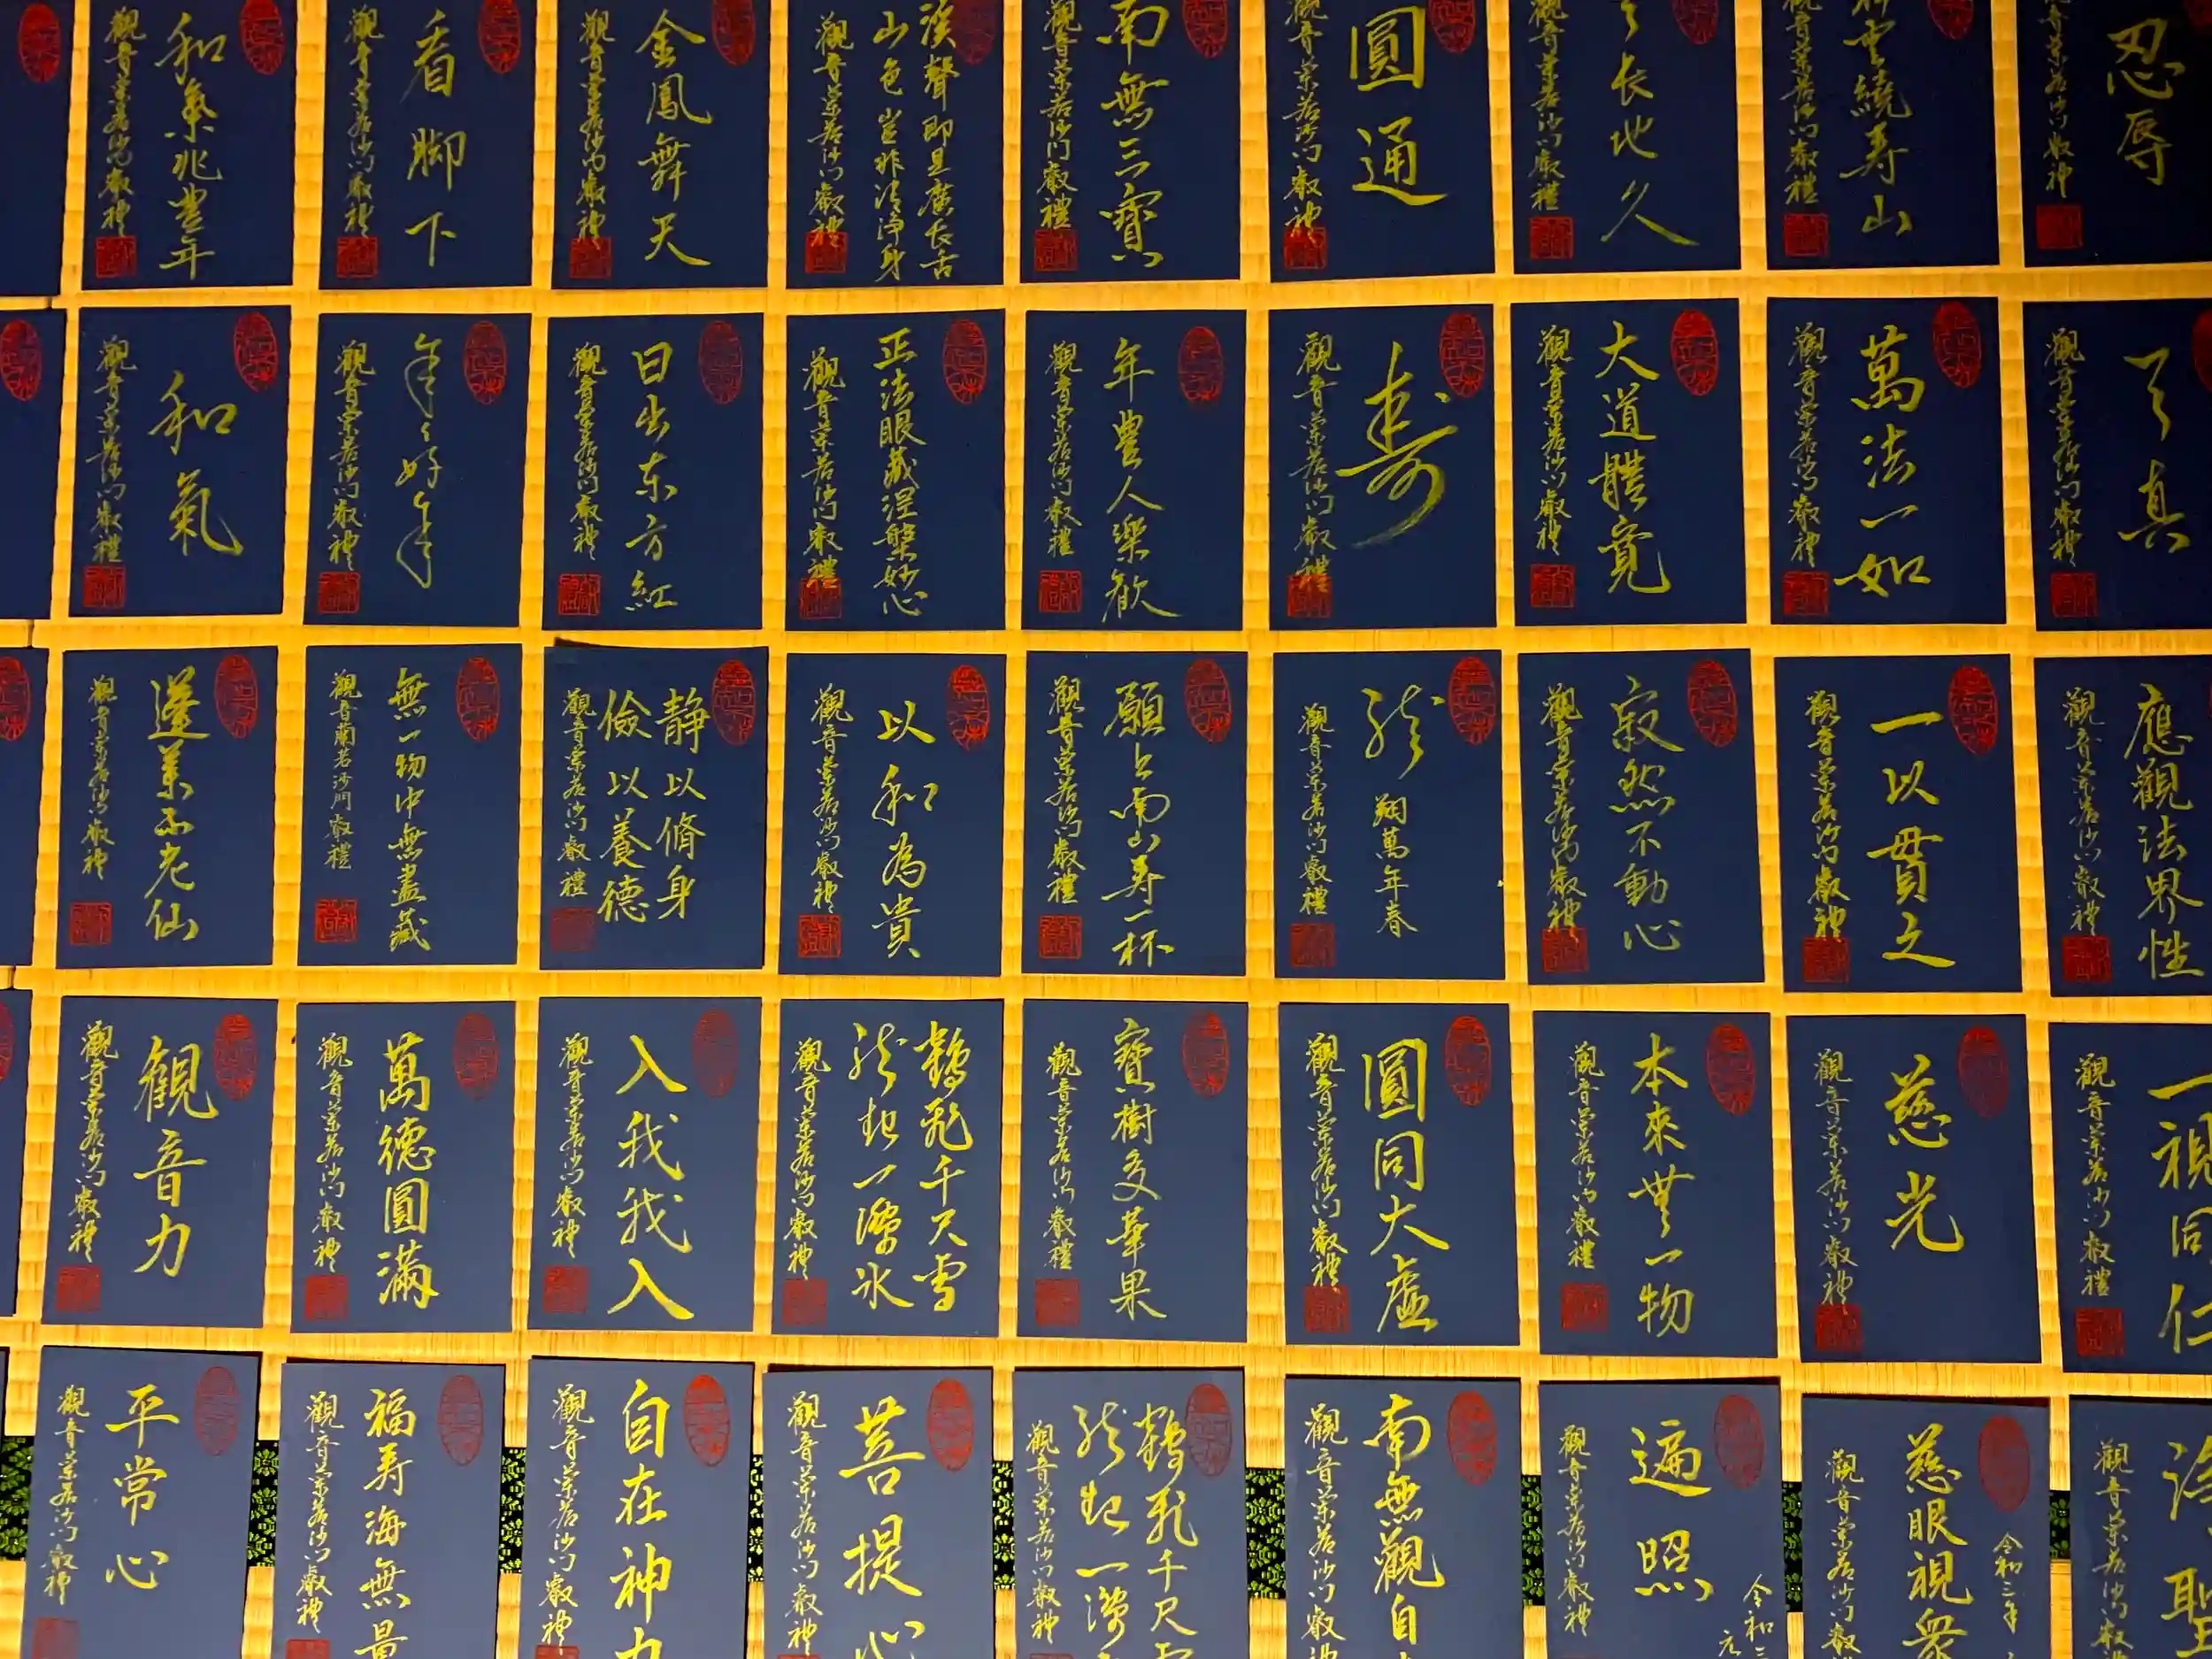 和氣兆豊年
觀音蘭若沙門叡禮
看脚下
觀音蘭若沙門叡禮
金鳳舞天
觀音蘭若沙門叡禮
溪聲即是廣長舌
山色豈非清淨身
觀音蘭若沙門叡禮
南無三寳
觀音蘭若沙門叡禮
圓通
觀音蘭若沙門叡禮
天長地久
觀音蘭若沙門叡禮
祥雲繞寿山
觀音蘭若沙門叡禮
忍辱
觀音蘭若沙門叡禮
和氣
觀音蘭若沙門叡禮
年々好年
觀音蘭若沙門叡禮
日出東方紅
觀音蘭若沙門叡禮
正法眼蔵涅槃妙心
觀音蘭若沙門叡禮
年豊人樂歓
觀音蘭若沙門叡禮
寿
觀音蘭若沙門叡禮
大道體寛
觀音蘭若沙門叡禮
萬法一如
觀音蘭若沙門叡禮
天真
觀音蘭若沙門叡禮
蓬莱不老仙
觀音蘭若沙門叡禮
無一物中無盡藏
觀音蘭若沙門叡禮
静以脩身
儉以養德
觀音蘭若沙門叡禮
以和為貴
觀音蘭若沙門叡禮
願上南山寿一杯
觀音蘭若沙門叡禮
龍翔萬年春
觀音蘭若沙門叡禮
寂然不動心
觀音蘭若沙門叡禮
一以貫之
觀音蘭若沙門叡禮
應觀法界性
觀音蘭若沙門叡禮
観音力
觀音蘭若沙門叡禮
萬德圓滿
觀音蘭若沙門叡禮
入我我入
觀音蘭若沙門叡禮
鶴飛千尺雪
龍起一潭氷
觀音蘭若沙門叡禮
寳樹多華果
觀音蘭若沙門叡禮
圓同大虚
觀音蘭若沙門叡禮
本來無一物
觀音蘭若沙門叡禮
慈光
觀音蘭若沙門叡禮
一視同仁
觀音蘭若沙門叡禮
平常心
觀音蘭若沙門叡禮
福寿海無量
觀音蘭若沙門叡禮
自在神力
觀音蘭若沙門叡禮
菩提心
觀音蘭若沙門叡禮
鶴飛千尺雪
龍起一潭
觀音蘭若沙門叡禮
南無觀自
觀音蘭若沙門叡禮
令和三
遍照
觀音蘭若沙門叡禮
令和三年
慈眼視衆
觀音蘭若沙門叡禮
聖
觀音蘭若沙門叡禮